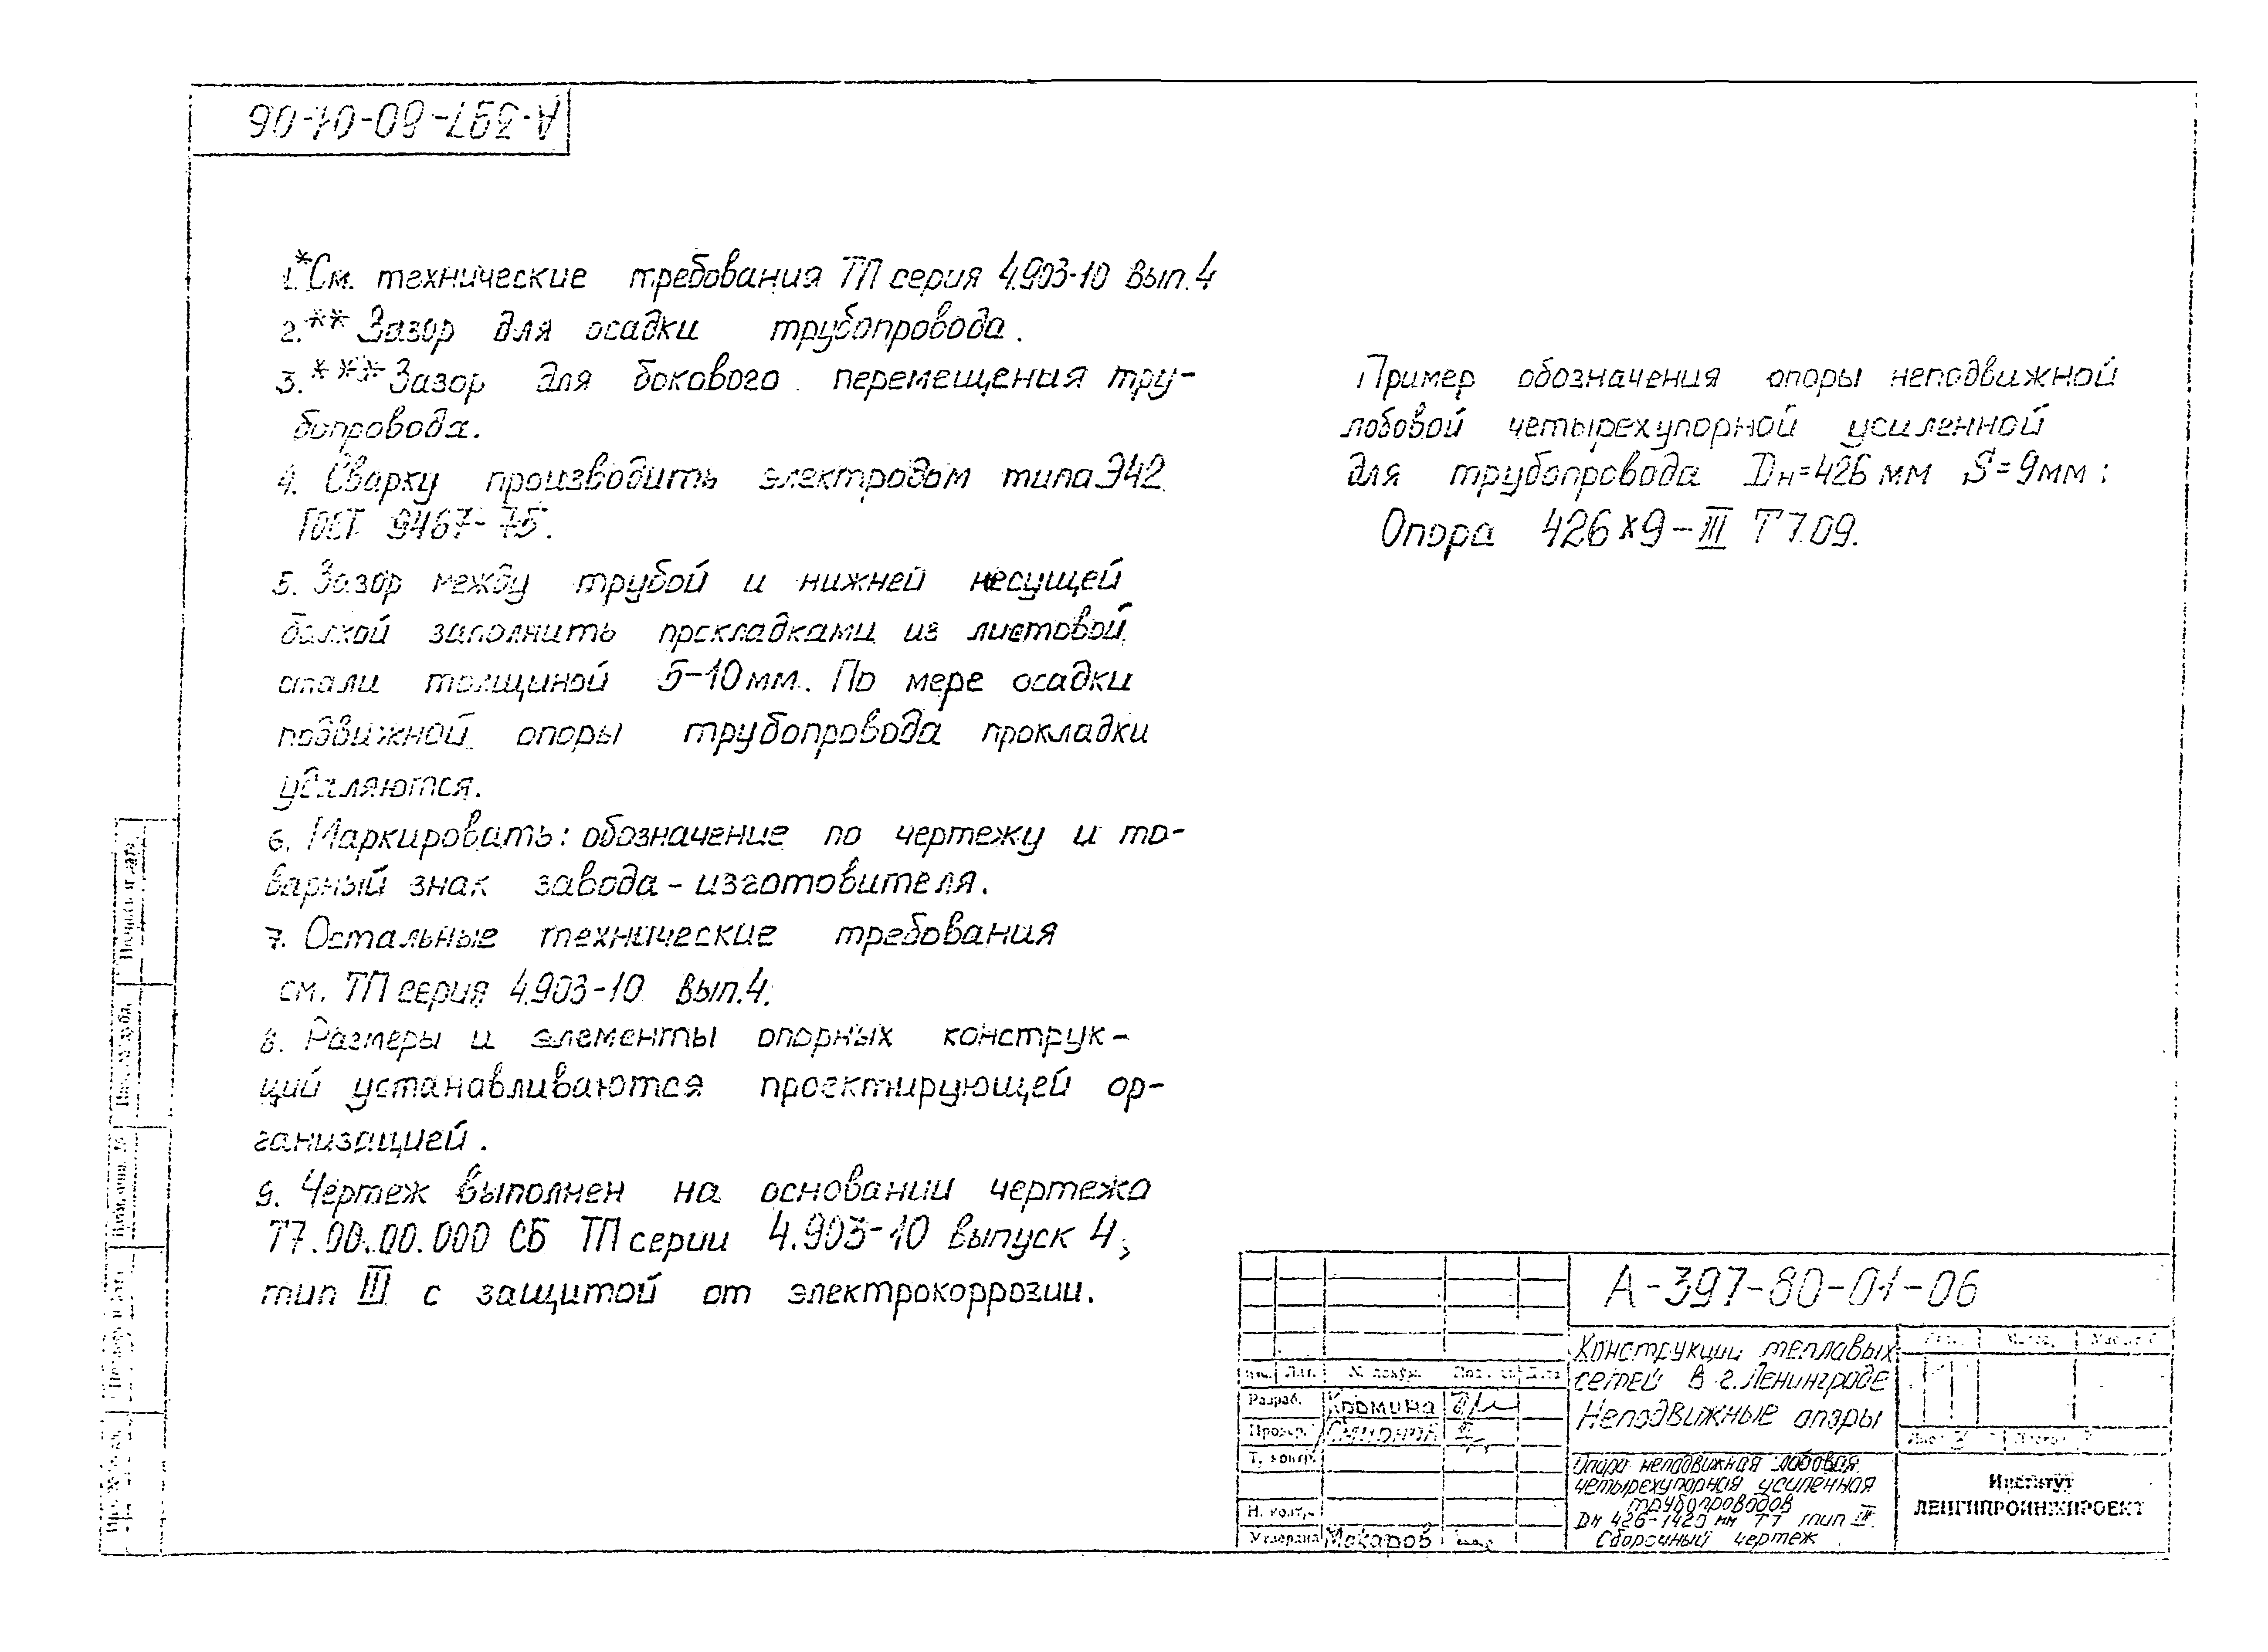 А-397-80-01-06
1.* См. технические требования ТП серия 4.903-10 вып. 4
2.** Зазор для осадки трубопровода.
3.*** Зазор для бокового перемещения тру-
бопровода.
4. Сварку производить электродом типа Э42
ГОСТ 9467-75.
5. Зазор между трубой и нижней несущей
балкой заполнить прокладками из листовой
стали толщиной 5-10 мм. По мере осадки
подвижной опоры трубопровода прокладки
удаляются.
6. Маркировать: обозначение по чертежу и то-
варный знак завода-изготовителя.
7. Остальные технические требования
см. ТП серия 4.903-10 вып. 4.
8. Размеры и элементы опорных конструк-
ций устанавливаются проектирующей ор-
ганизацией.
9. Чертеж выполнен на основании чертежа
Т7.00.00.000 СБ ТП серии 4.903-10 выпуск 4,
тип III с защитой от электрокоррозии.
Пример обозначения опоры неподвижной
лобовой четырехупорной усиленной
для трубопровода Dн=426 мм S=9 мм:
Опора 426х9-III Т7.09.
А-397-80-01-06
Конструкции тепловых
сетей в г. Ленинграде
Неподвижные опоры
Опора неподвижная лобовая
четырехупорная усиленная
трубопроводов
Dн 426-1420 мм Т7 тип III.
Сборочный чертеж
Изм. Лис. № докум.
Разраб.
Провер.
Т. контр.
Н. контр.
Утвердил Макаров
Институт
ЛЕНГИПРОИНЖПРОЕКТ